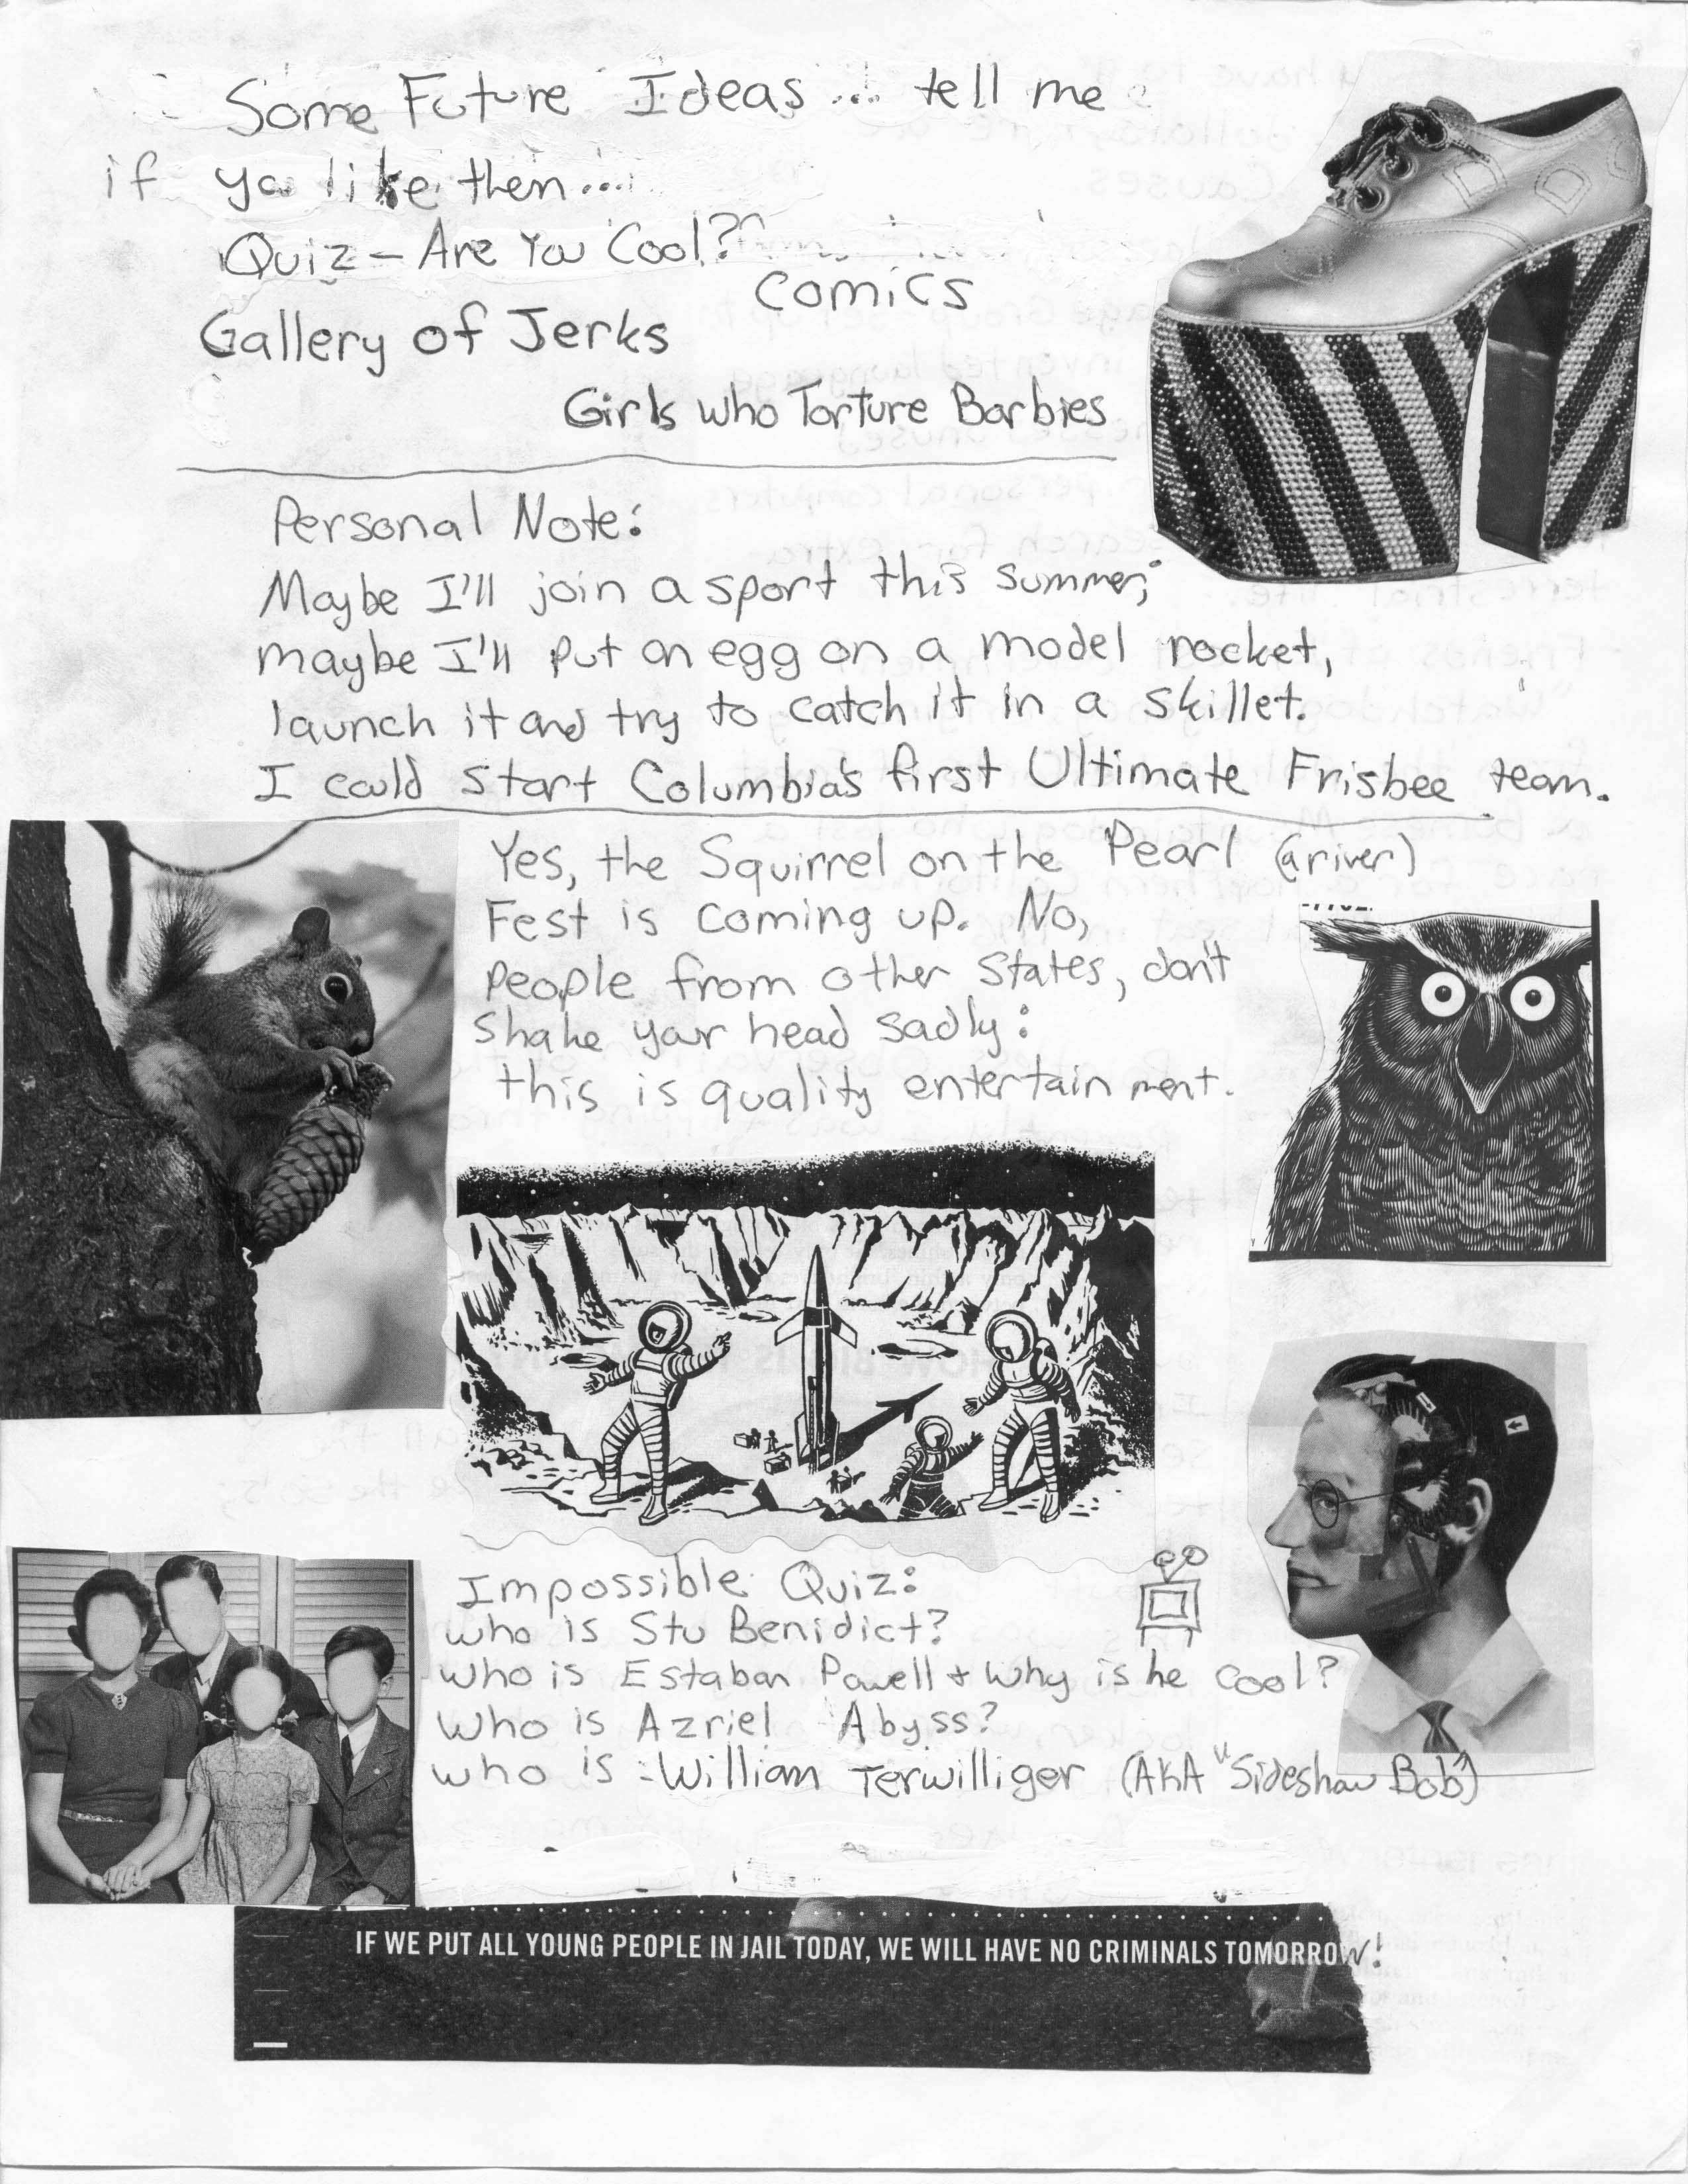 Some Future Ideas... tell me
if ya like them...
Quiz - Are You Cool?
Comics
Gallery of Jerks
Girls who Torture Barbies
Personal Note:
Maybe I'll join a sport this summer;
maybe I'll put an egg on a model rocket,
launch it and try to catch it in a skillet.
I could start Columbia's first Ultimate Frisbee team.
Yes, the Squirrel on the Pearl (a river)
Fest is coming up. No,
people from other states, don't
shake your head sadly:
this is quality entertainment.
Impossible Quiz:
who is Stu Benidict?
who is Estaban Powell + why is he cool?
who is Azriel Abyss?
who is William Terwilliger (AKA "Sideshow Bob")
IF WE PUT ALL YOUNG PEOPLE IN JAIL TODAY, WE WILL HAVE NO CRIMINALS TOMORROW!